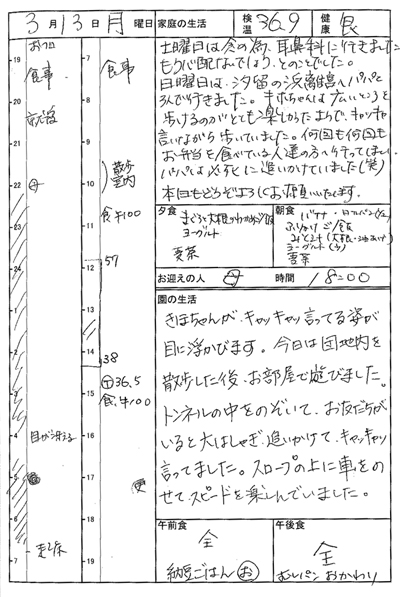 3月13日月曜日 家庭の生活 検温 36.9 健康 良
土曜日は念の為、耳鼻科に行きました
もう心配ないでしょう、とのことでした。
日曜日は、汐留の浜離宮へパパと
3人で行きました。きほちゃんは広いところを
歩けるのがとても楽しかったようで、キャッキャ
言いながら歩いていました。何回も何回も
お弁当を食べている人達の方へ行ってしまい、
パパは必死に追いかけていました(笑)
本日もどうぞよろしくお願いいたします。
夕食
ヨーグルト
麦茶
朝食
バナナ・
ふりかけご飯
ヨーグルト
麦茶
お迎えの人 母 時間 18:00
園の生活
きほちゃんが、キャッキャッ言ってる姿が
目に浮かびます。今日は団地内を
散歩した後、お部屋で遊びました。
トンネルの中をのぞいて、お友だちが
いると大はしゃぎ。追いかけて、キャッキャッ
言ってました。スロープの上に車をの
せてスピードを楽しんでいました。
午前食
全
納豆ごはん お
午後食
全
むしパン おかわり
19
おフロ
食事
就寝
母
22
23
24
1
2
3
4
目が冴える
5
6
7
起床
7
食事
8
9
10
散歩
室内
11
食 牛100
12
57
13
14
38
15
36.5
食 牛100
16
17
便
18
19